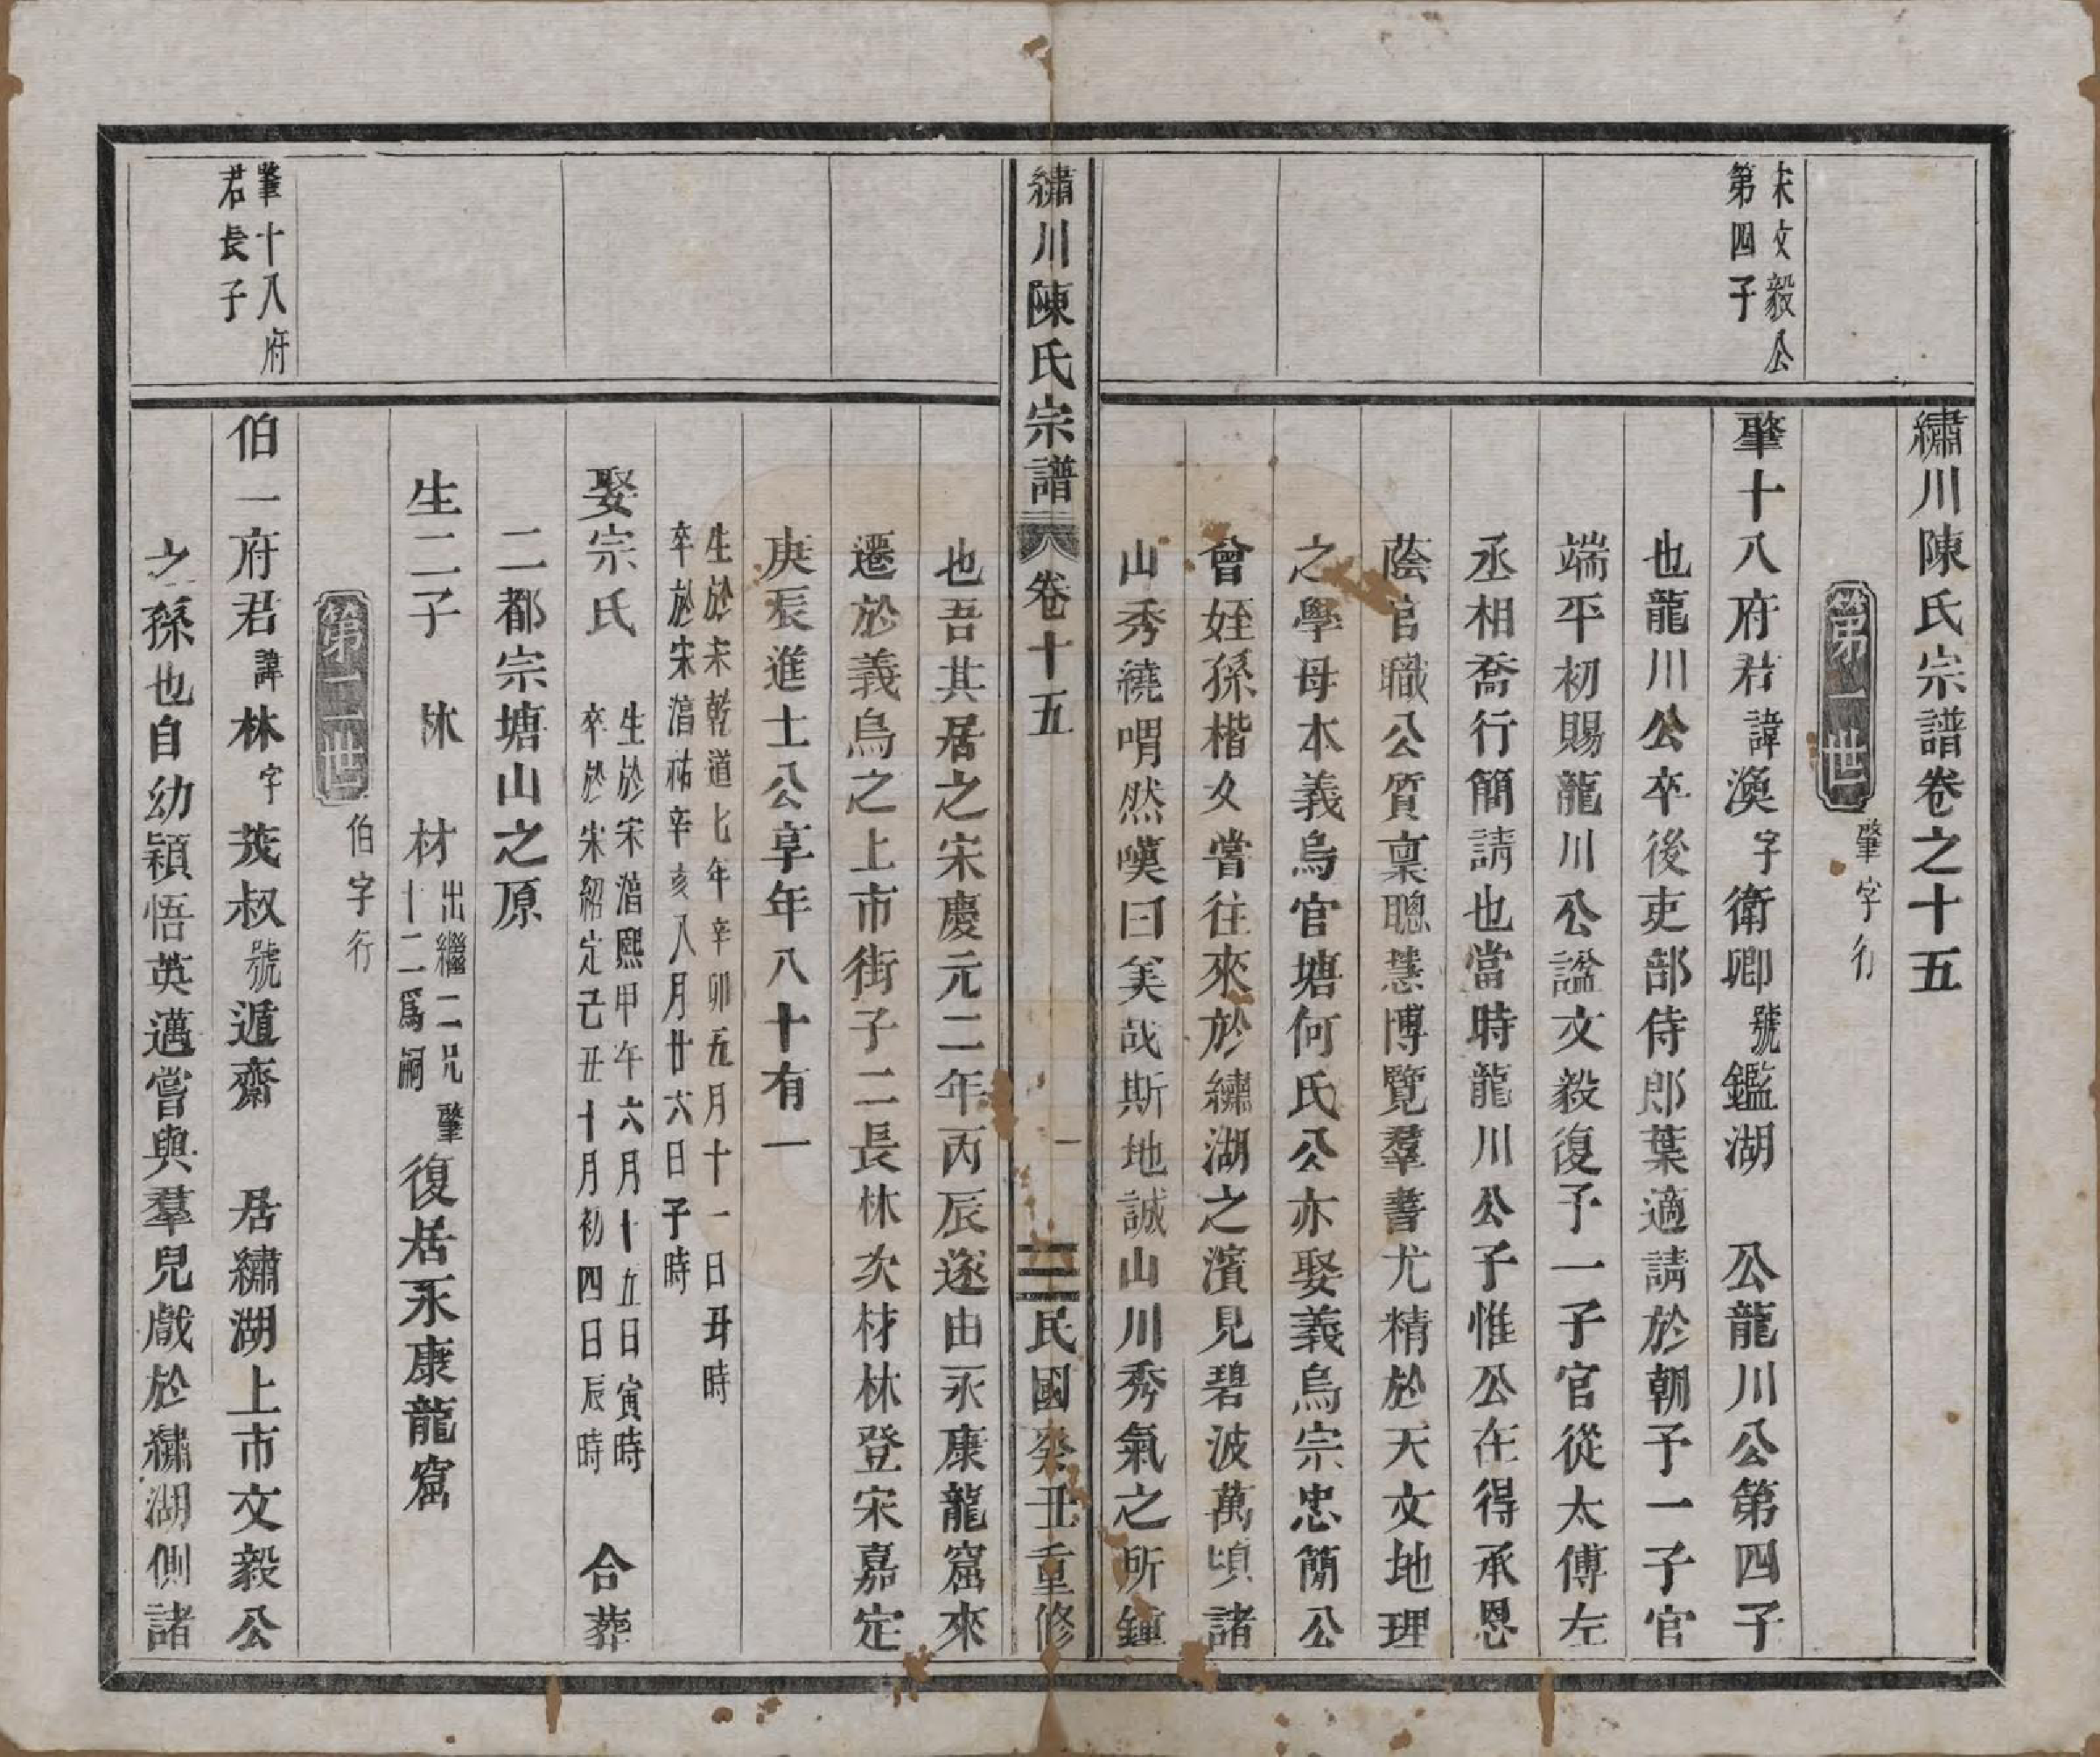 繡川陳氏宗譜卷之十五
第一世
肇字行
宋文毅公
第四子
肇十八府君諱渙字衛卿號鑑湖　公龍川公第四子
也龍川公卒後吏部侍郎葉適請於朝予一子官
端平初賜龍川公謚文毅復予一子官從太傅左
丞相喬行簡請也當時龍川公子惟公在得承恩
蔭官職公質稟聰慧博覽羣書尤精於天文地理
之學母本義烏官塘何氏公亦娶義烏宗忠簡公
曾姪孫楷女嘗往來於繡湖之濱見碧波萬頃諸
山秀繞喟然嘆曰美哉斯地誠山川秀氣之所鍾
繡川陳氏宗譜　卷十五　一　民國癸丑重修
也吾其居之宋慶元二年丙辰遂由永康龍窟來
遷於義烏之上市街子二長林次材林登宋嘉定
庚辰進士公享年八十有一
生於宋乾道七年辛卯五月十一日丑時
卒於宋淳祐辛亥八月廿六日子時
娶宗氏
生於宋淳熙甲午六月十五日寅時
卒於宋紹定己丑十月初四日辰時
合葬
二都宗塘山之原
生二子　林　材
出繼二兄肇
十二爲嗣
復居永康龍窟
第二世
伯字行
肇十八府
君長子
伯一府君諱林字茂叔號遁齋　居繡湖上市文毅公
之孫也自幼穎悟英邁嘗與羣兒戲於繡湖側諸